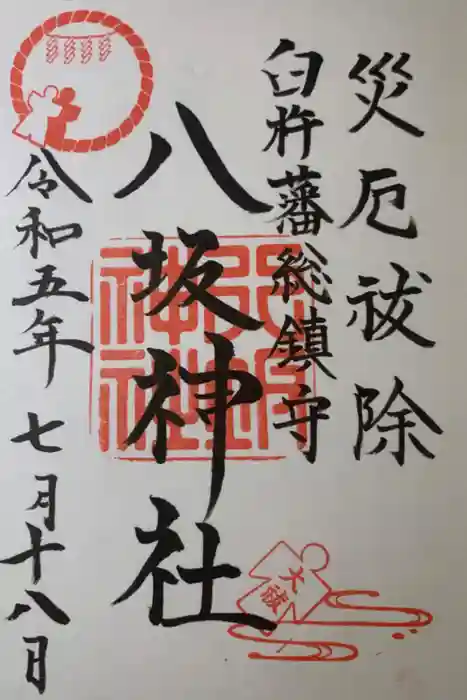 災厄祓除
臼杵藩総鎮守
八坂神社
令和五年 七月十八日
八坂神社
大祓